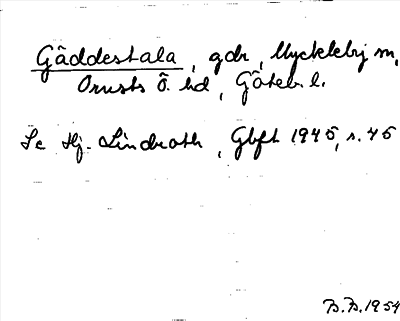 Gäddestala, gdr, Myckleby sn,
Orusts Ö. hd, Göteb. l.
Se Hj. Lindroth, Gbft 1945, s. 45
B.B. 1954